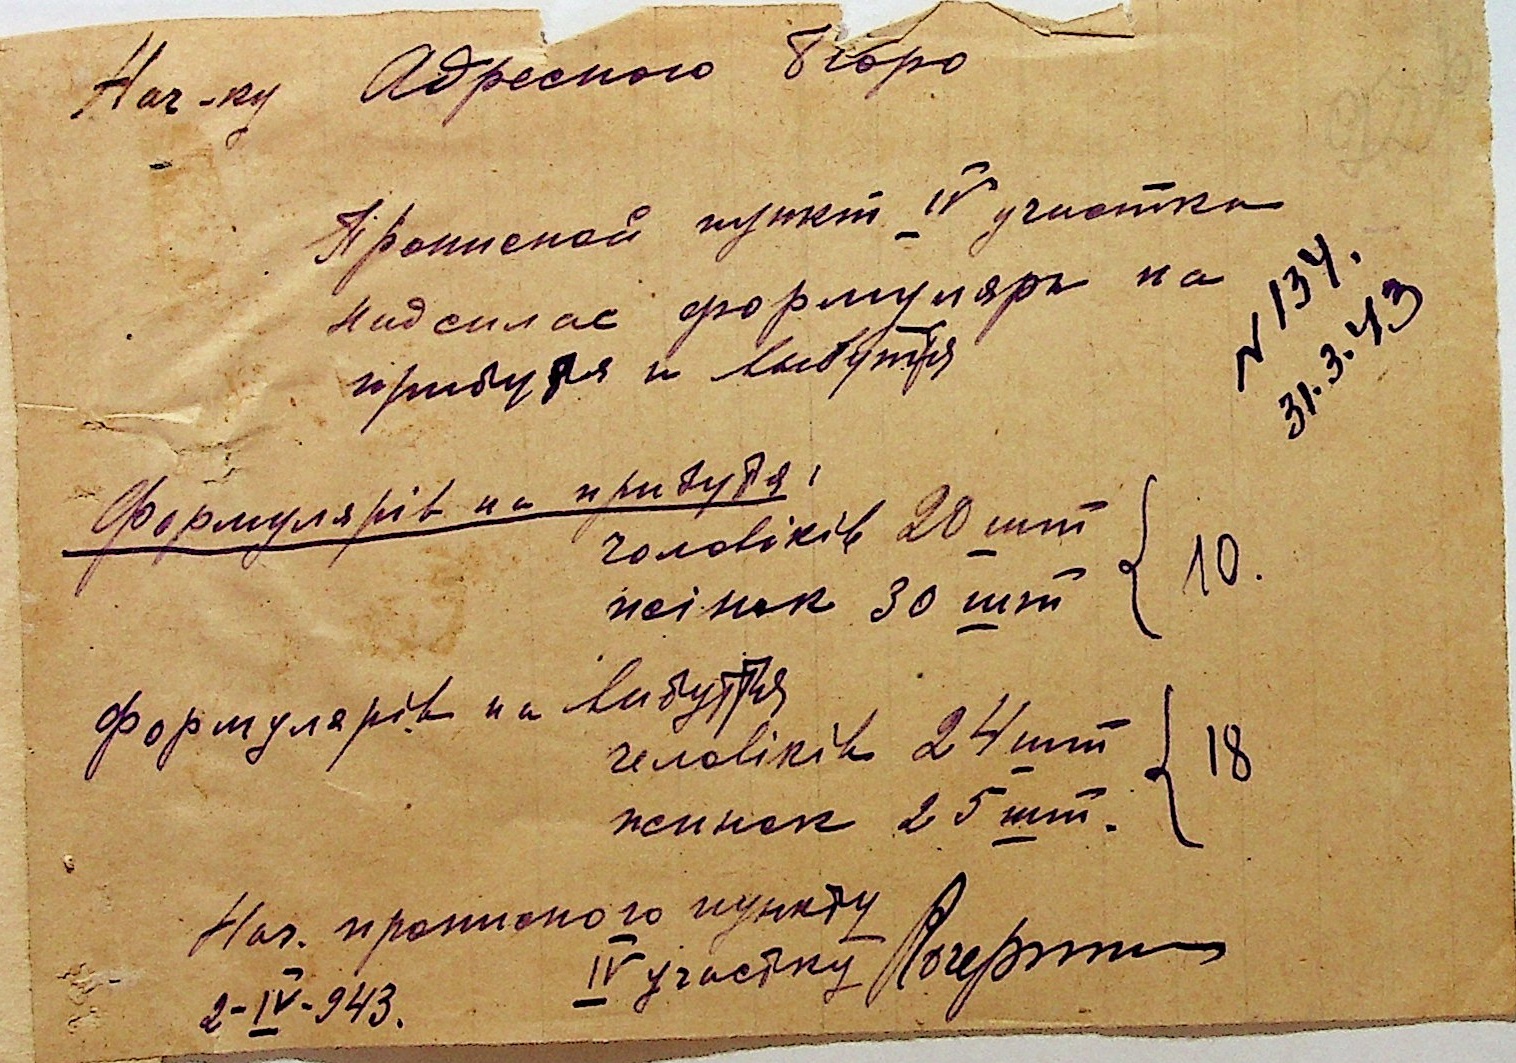 Нач-ку Адресного бюро
Прописной пункт IV участка
надсилає формуляри на
прибутя и выбуття
N 134.
31.3.43
Формулярів на прибутя:
чоловіків 20 шт
жінок 30 шт
10.
формулярів на вибуття
человіків 24 шт
жинок 25 шт.
18
Нач. прописного пункту
IV участку
2-IV-943.